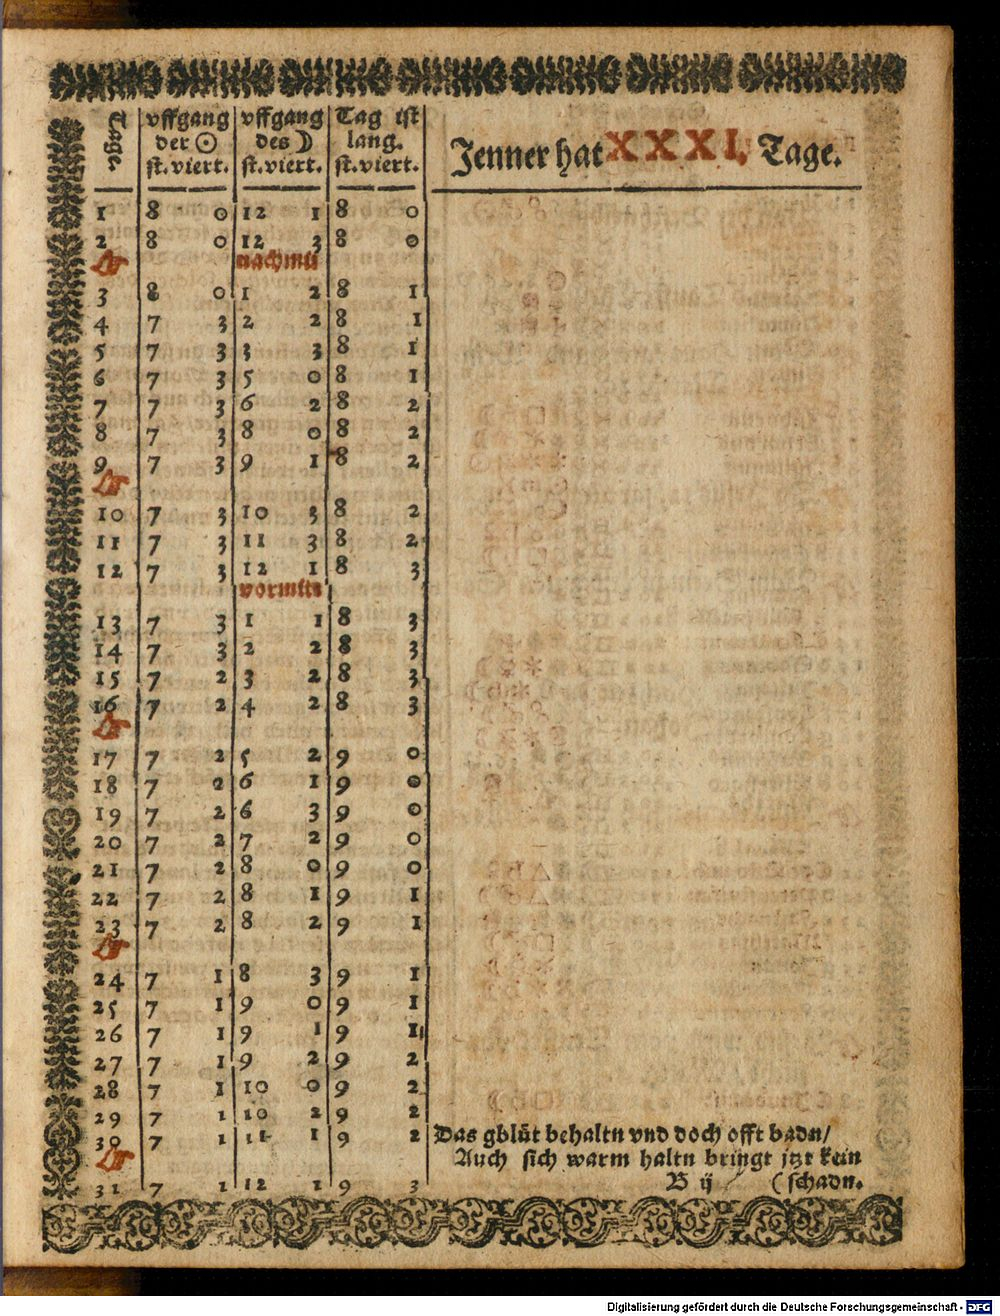 Tage. vffgang der ☉ st. viert. vffgang des ☽ st. viert. Tag ist lang. st. viert.
Jenner hat XXXI. Tage.
1 8 0 12 1 8 0
2 8 0 12 3 8 0
nachmit
3 8 0 1 2 8 1
4 7 3 2 2 8 1
5 7 3 3 3 8 1
6 7 3 5 0 8 1
7 7 3 6 2 8 2
8 7 3 8 0 8 2
9 7 3 9 1 8 2
10 7 3 10 3 8 2
11 7 3 11 3 8 2
12 7 3 12 1 8 3
vormitt
13 7 3 1 1 8 3
14 7 3 2 2 8 3
15 7 2 3 2 8 3
16 7 2 4 2 8 3
17 7 2 5 2 9 0
18 7 2 6 1 9 0
19 7 2 6 3 9 0
20 7 2 7 2 9 0
21 7 2 8 0 9 0
22 7 2 8 1 9 1
23 7 2 8 2 9 1
24 7 1 8 3 9 1
25 7 1 9 0 9 1
26 7 1 9 1 9 1
27 7 1 9 2 9 2
28 7 1 10 0 9 2
29 7 1 10 2 9 2
30 7 1 11 1 9 2
31 7 1 12 1 9 3
Das gblüt behaltn vnd doch offt badn/
Auch sich warm haltn bringt jtzt kein
B ij (schadn.
Digitalisierung gefördert durch die Deutsche Forschungsgemeinschaft - DFG